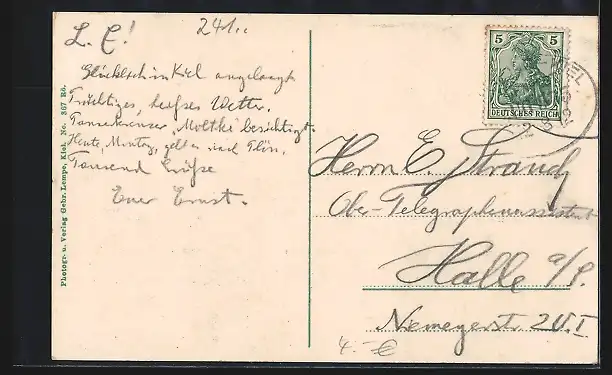 L. E!
241..
Glücklich in Kiel angelangt
Prächtiges, heißes Wetter.
Panzerkreuzer „Moltke" besichtigt.
Heute, Montag, geht es nach Plön.
Tausend Grüße
Euer Ernst.
Photogr. u. Verlag Gebr. Lempe, Kiel. No. 367 Rö.
5 5
DEUTSCHES REICH
KIEL
Herrn E. Strauch
Ober-Telegraphenassistent
Halle a/S.
Niemeyerstr 20. I
4.- €